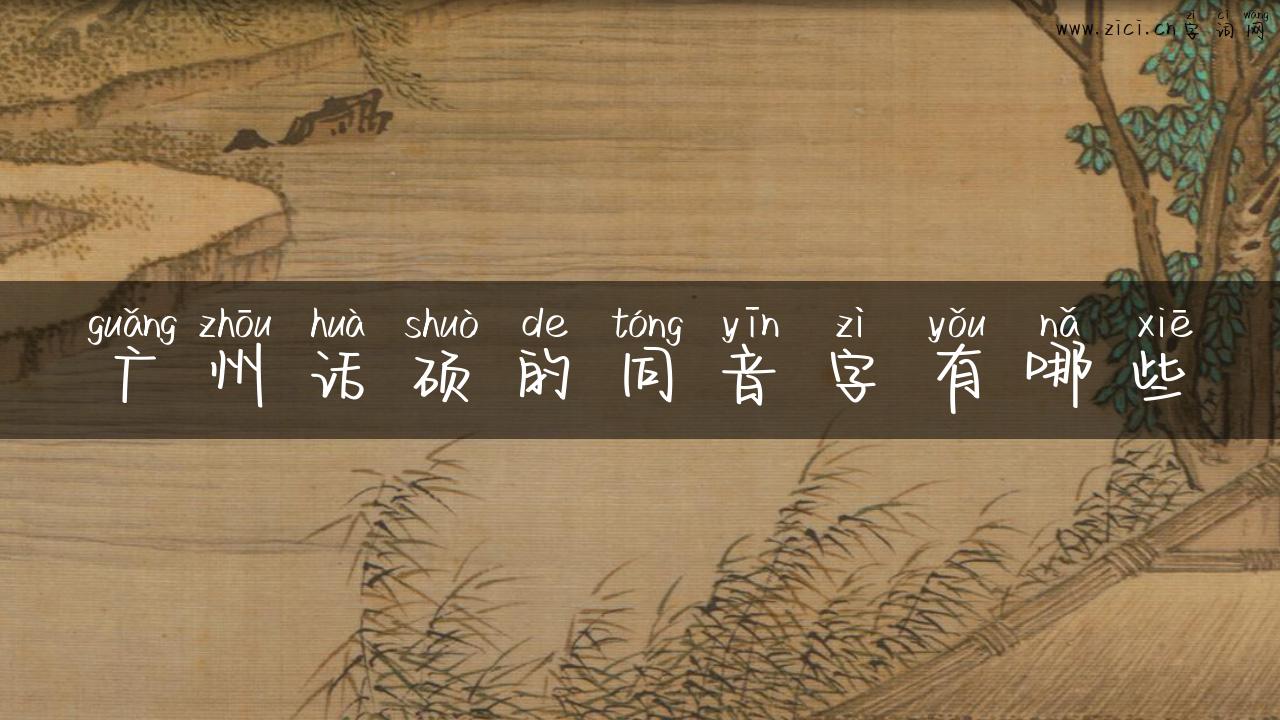 zì cí wǎng
www.zici.cn字词网
guǎng zhōu huà shuò de tóng yīn zì yǒu nǎ xiē
广州话硕的同音字有哪些